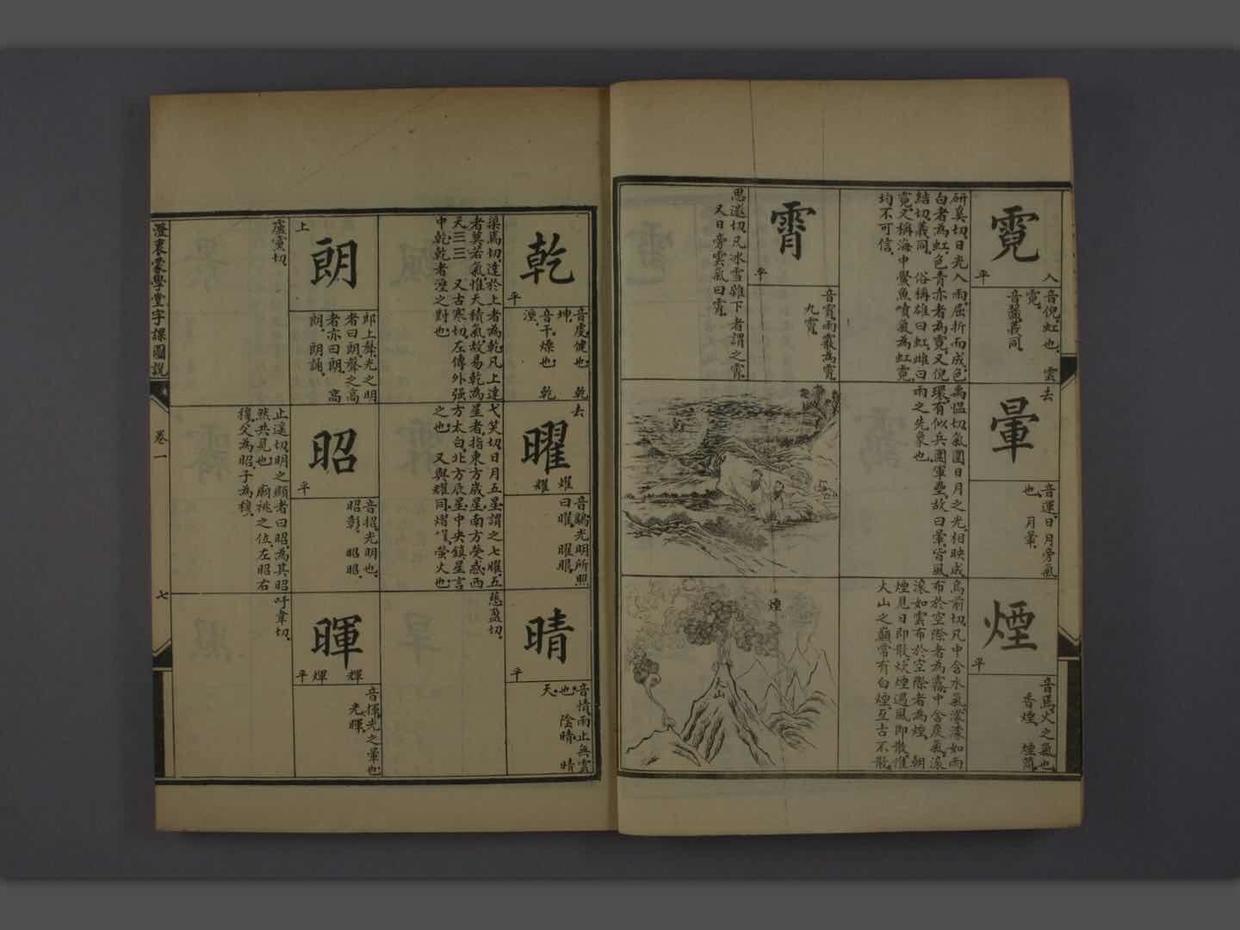 霓
入
平
音倪虹也 雲
霓
音蘖義同
研奚切日光入雨屈折而成色
白者為虹色青赤者為霓又倪
結切義同 俗稱雄曰虹雌曰
霓又稱海中蜃魚噴氣為虹霓
均不可信
霄
平
音宵雨霰為霄
九霄
思邀切凡冰雪雜下者謂之霄
又日旁雲氣曰霄
去
暈
音運日月旁氣
也 月暈
禹慍切氣圍日月之光相映成
環有似兵圍軍壘故曰暈皆風
雨之先象也
煙
平
音焉火之氣也
香煙 煙筒
烏前切凡中含水氣濛濛如雨
布於空際者為霧中含炭氣滾
滾如雲布於空際者為煙 朝
煙見日即散炊煙遇風即散惟
火山之巔常有白煙亙古不散
煙
火山
乾
平
音虔健也 乾
坤
音干燥也 乾
溼
渠焉切達於上者為乾凡上達
者莫若氣惟天積氣故易乾為
天三三 又古寒切左傳外强
中乾乾者溼之對也
去
曜
燿
耀
音鷂光明所照
曰曜 曜眼
弋笑切日月五星謂之七曜五
星者指東方歲星南方熒惑西
方太白北方辰星中央鎮星言
之也 又與耀同熠燿螢火也
晴
平
音情雨止無雲
也 陰晴 晴
天
慈盈切
上
朗
郎上聲光之明
者曰朗聲之高
者亦曰朗 高
朗 朗誦
盧黨切
昭
平
音招光明也
昭彰 昭昭
止遥切明之顯者曰昭為其昭
然共見也 廟祧之位左昭右
穆父為昭子為穆
暉
輝
煇
平
音揮光之暈也
光暉
吁韋切
澄衷蒙學堂字課圖說
卷一
七